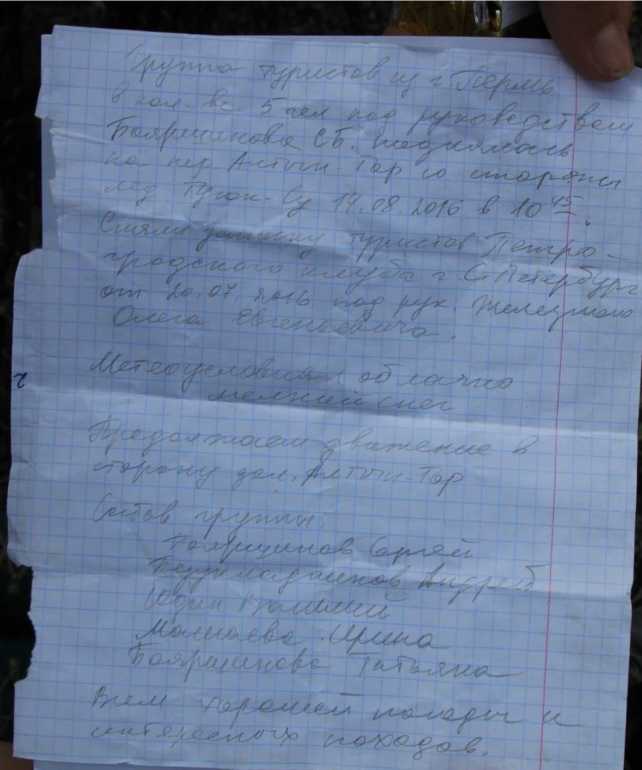 Группа туристов из г. Пермь
в кол-ве 5 чел под руководством
Бояршинова С.Б. поднялась
на пер. Алтын-Тор со стороны
лед. Туюк-Су 14.08.2016 в 10 45.
Сняли записку туристов Петро-
градского клуба г. С.Петербург
от 20.07.2016 под рук.
Олега Евгеньевича.
Метеоусловия облачно
мелкий снег
Продолжаем движение в
сторону дол. Алтын-Тор
Состав группы:
Бояршинов Сергей
Андрей
Ирина
Бояршинова Татьяна
Всем хорошей погоды и
интересных походов.